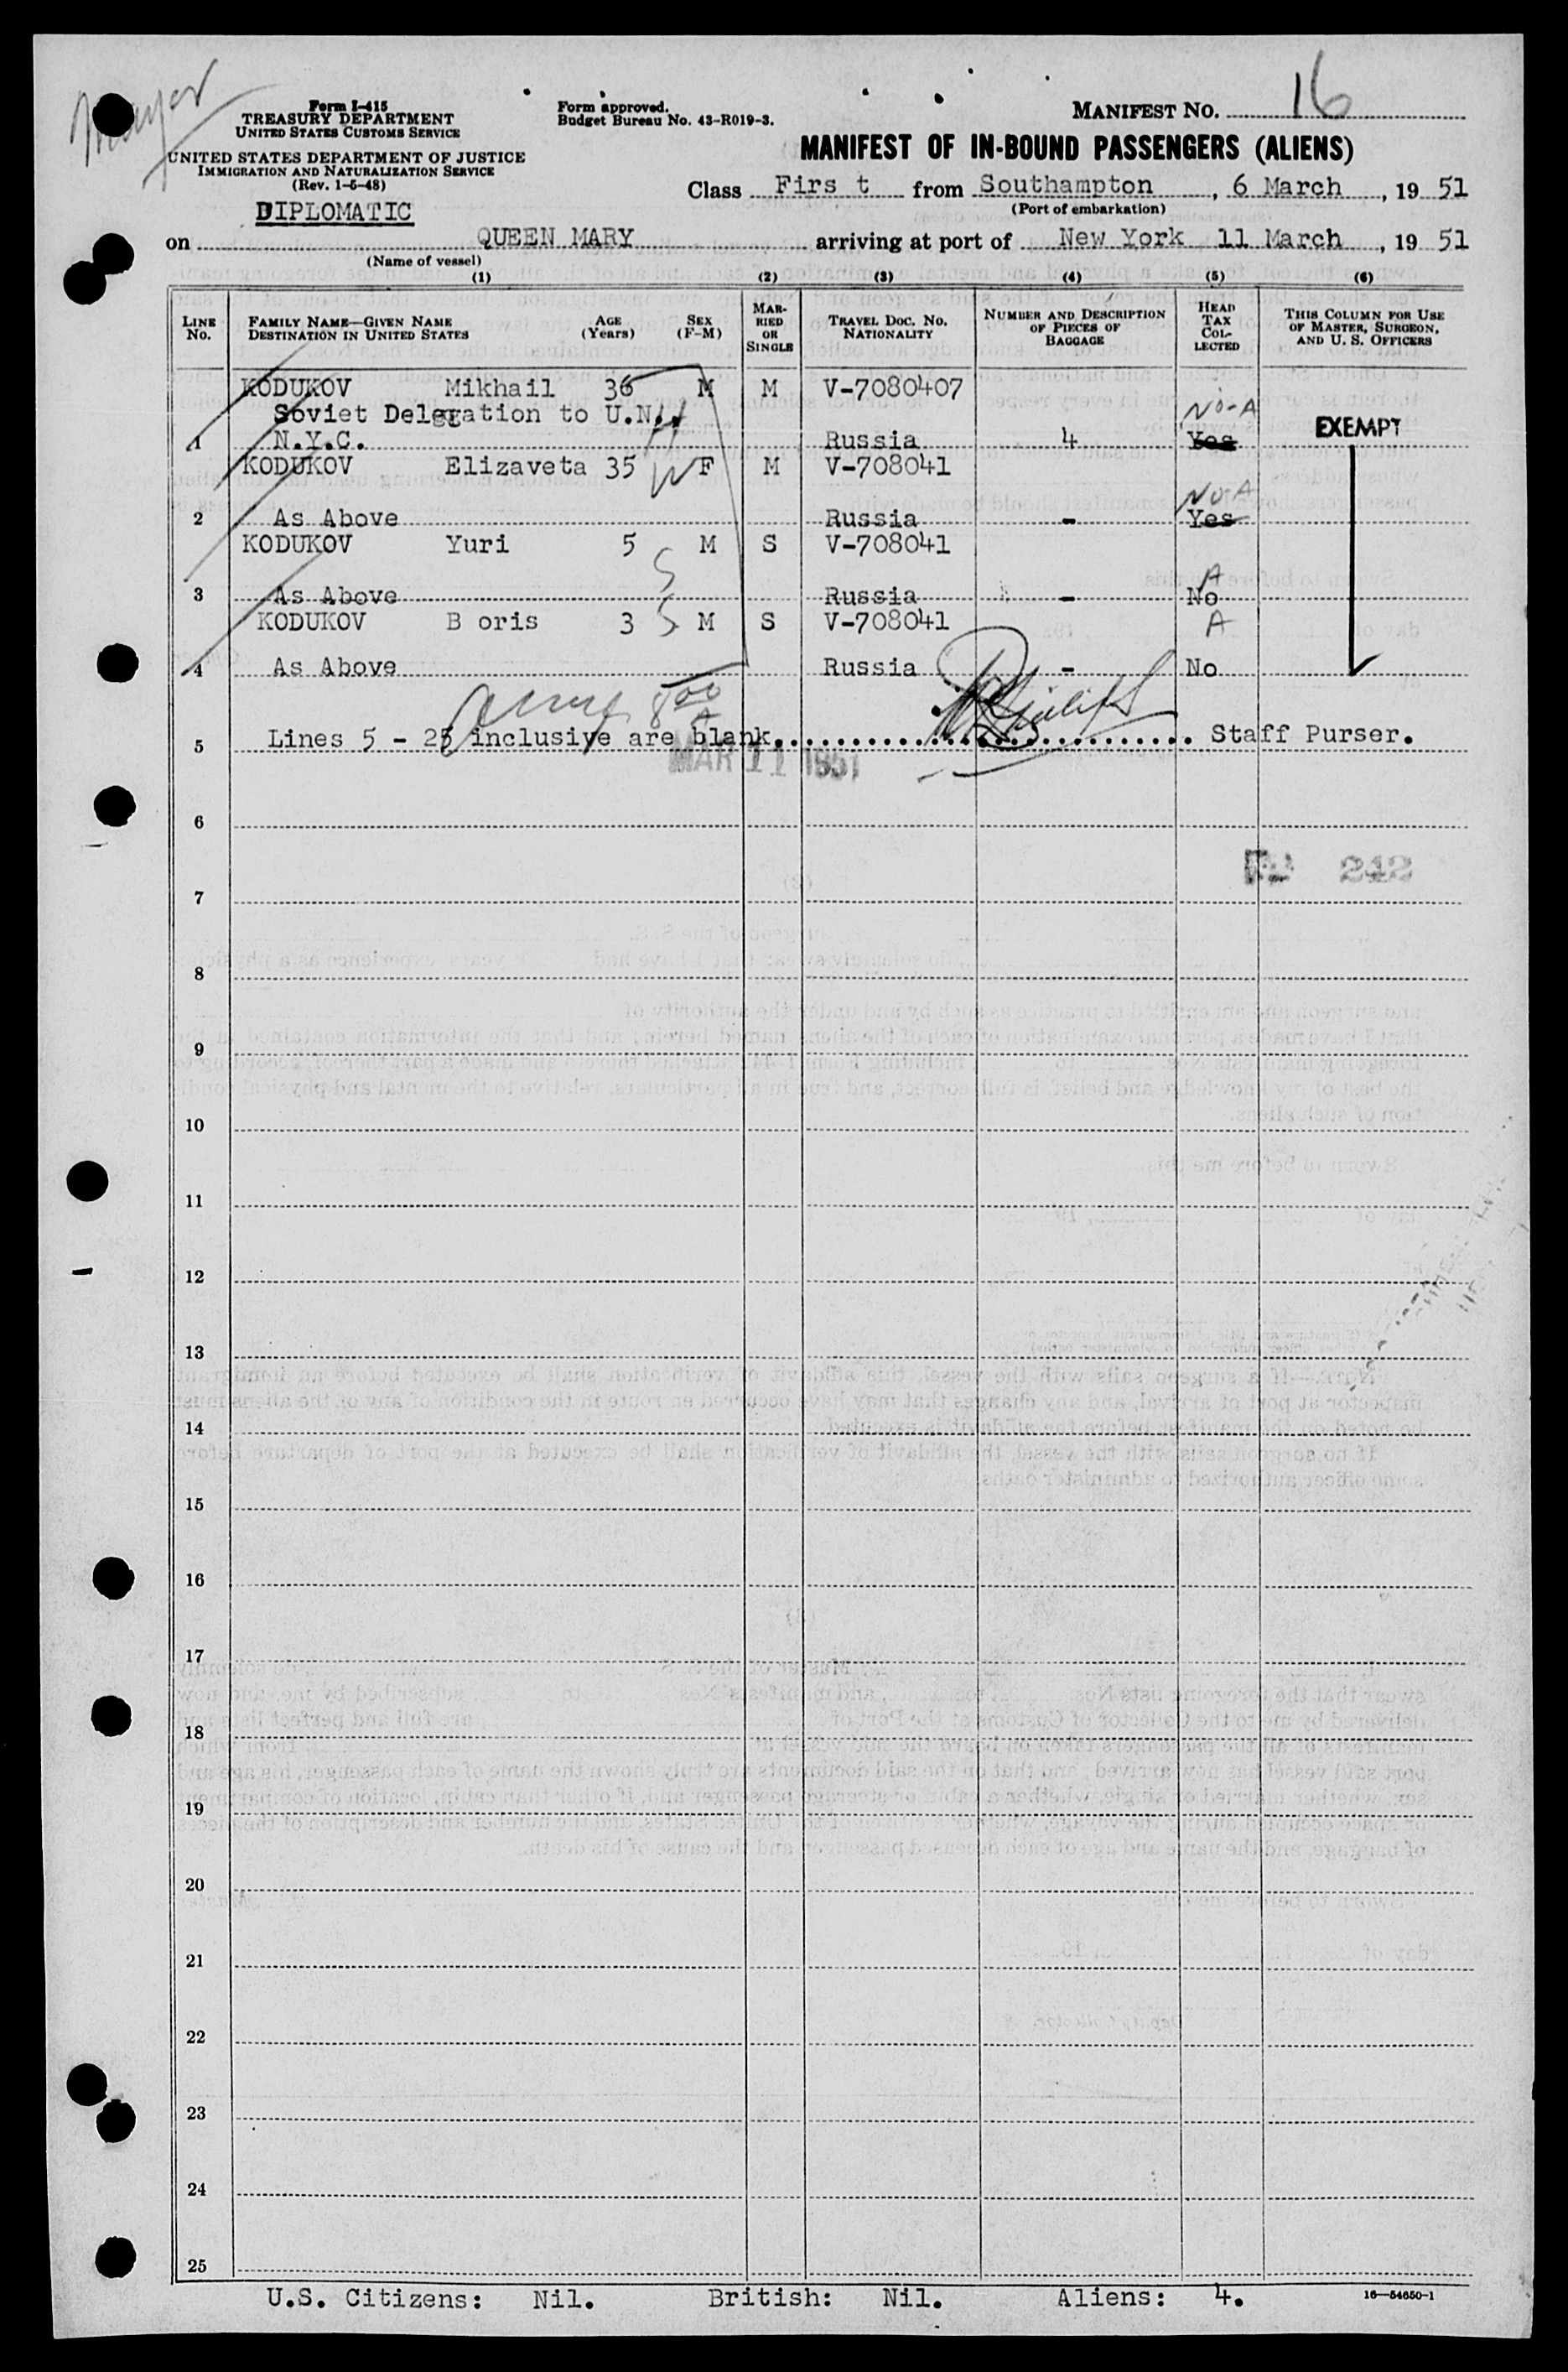 Form I-415
TREASURY DEPARTMENT
UNITED STATES CUSTOMS SERVICE
UNITED STATES DEPARTMENT OF JUSTICE
IMMIGRATION AND NATURALIZATION SERVICE
(Rev. 1-5-48)
Form approved.
Budget Bureau No. 43-R019-3.
MANIFEST NO. 16
MANIFEST OF IN-BOUND PASSENGERS (ALIENS)
Class Firs t from Southampton, 6 March, 19 51
(Port of embarkation)
DIPLOMATIC
on QUEEN MARY arriving at port of New York 11 March, 19 51
(Name of vessel)
(1) (2) (3) (4) (5) (6)
LINE NO. FAMILY NAME—GIVEN NAME DESTINATION IN UNITED STATES AGE (Years) SEX (F-M) MARRIED OR SINGLE TRAVEL DOC. NO. NATIONALITY NUMBER AND DESCRIPTION OF PIECES OF BAGGAGE HEAD TAX COLLECTED THIS COLUMN FOR USE OF MASTER, SURGEON, AND U. S. OFFICERS
KODUKOV Mikhail 36 M M V-7080407
Soviet Delegation to U.N. H No-A
1 N.Y.C. Russia 4 Yes EXEMPT
KODUKOV Elizaveta 35 W F M V-708041
No-A
2 As Above Russia - Yes
KODUKOV Yuri 5 S M S V-708041
A
3 As Above Russia - No
KODUKOV B oris 3 S M S V-708041 A
4 As Above Russia - No
8 00
A
5 Lines 5 - 25 inclusive are blank. Staff Purser.
MAR 11 1951
6
242
7
8
9
10
11
12
13
14
15
16
17
18
19
20
21
22
23
24
25
U.S. Citizens: Nil. British: Nil. Aliens: 4. 16—54650-1